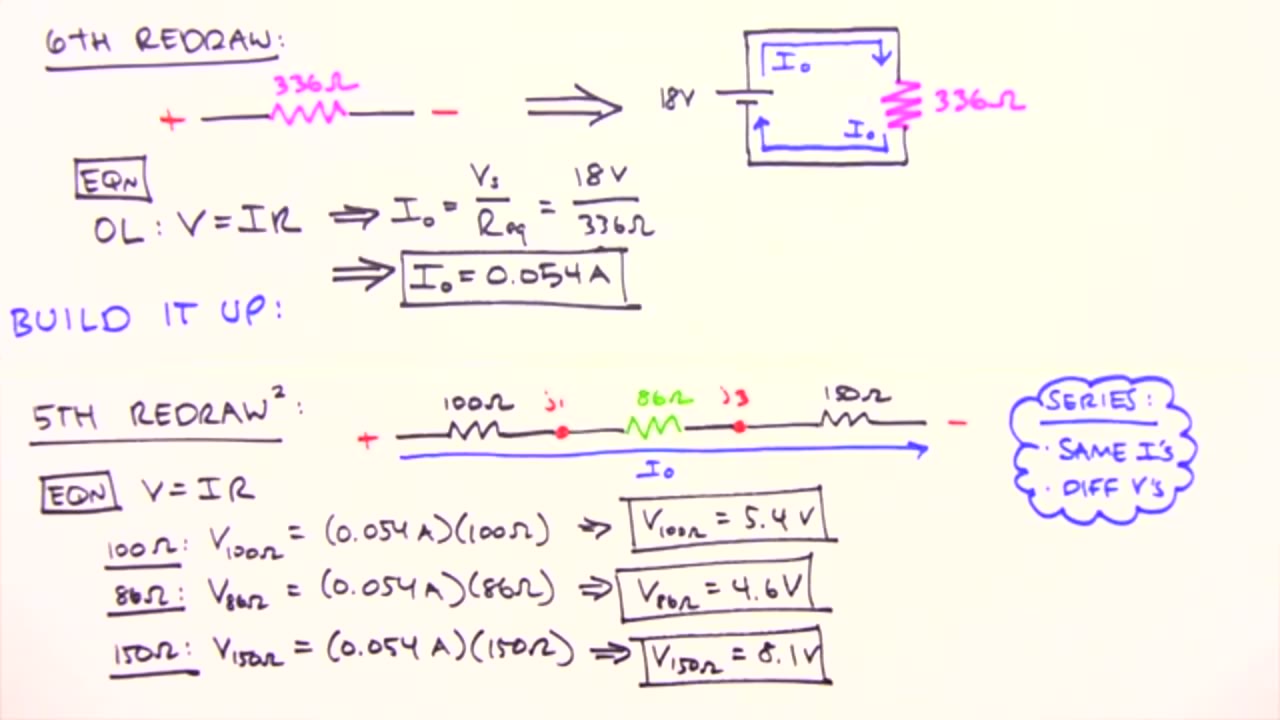 6TH REDRAW:
336Ω
+ −
18V
I₀
I₀
336Ω
EQN
OL: V = IR ⇒ I₀ = Vs/Req = 18V/336Ω
⇒ I₀ = 0.054A
BUILD IT UP:
5TH REDRAW²:
100Ω j1 86Ω j3 150Ω
+ −
I₀
SERIES:
· SAME I's
· DIFF V's
EQN V = IR
100Ω: V100Ω = (0.054A)(100Ω) ⇒ V100Ω = 5.4V
86Ω: V86Ω = (0.054A)(86Ω) ⇒ V86Ω = 4.6V
150Ω: V150Ω = (0.054A)(150Ω) ⇒ V150Ω = 8.1V